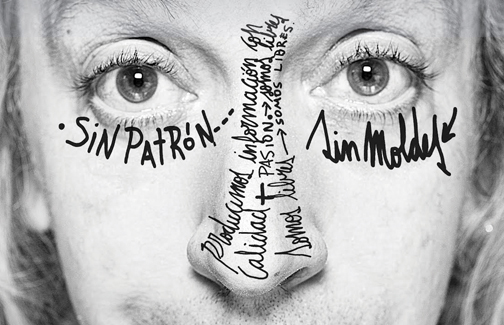 . SiN PATRÓN---
Producimos información con
Calidad + PASIÓN → somos libres
Somos libres → SOMOS LIBRES!
Sin Moldes